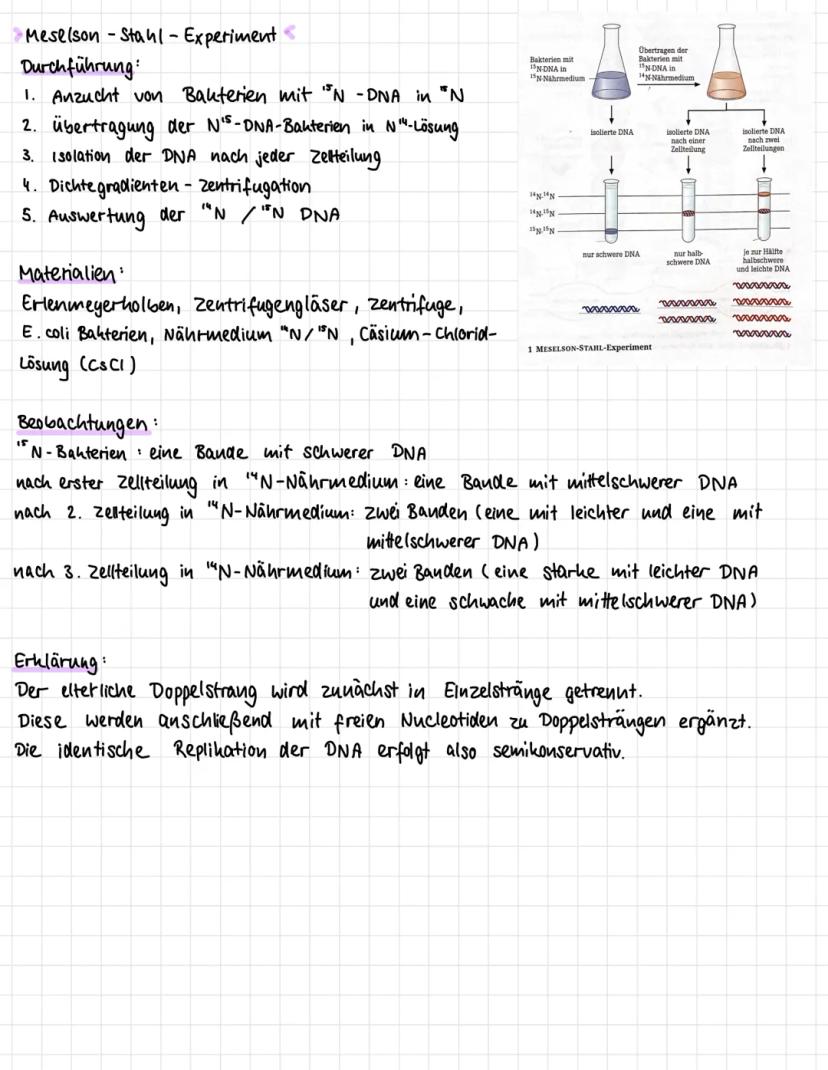 Meselson - Stahl - Experiment
Durchführung:
1. Anzucht von Bakterien mit ¹⁵N - DNA in ¹⁵N
2. Übertragung der N¹⁵-DNA-Bakterien in N¹⁴-Lösung
3. Isolation der DNA nach jeder Zellteilung
4. Dichtegradienten - Zentrifugation
5. Auswertung der ¹⁴N / ¹⁵N DNA
Bakterien mit
¹⁵N-DNA in
¹⁵N-Nährmedium
Übertragen der
Bakterien mit
¹⁵N-DNA in
¹⁴N-Nährmedium
isolierte DNA
isolierte DNA
nach einer
Zellteilung
isolierte DNA
nach zwei
Zellteilungen
¹⁴N-¹⁴N
¹⁴N-¹⁵N
¹⁵N-¹⁵N
nur schwere DNA
nur halb-
schwere DNA
je zur Hälfte
halbschwere
und leichte DNA
1 MESELSON-STAHL-Experiment
Materialien:
Erlenmeyerkolben, Zentrifugengläser, Zentrifuge,
E. coli Bakterien, Nährmedium ¹⁴N/¹⁵N, Cäsium-Chlorid-
Lösung (CsCl)
Beobachtungen:
¹⁵N-Bakterien: eine Bande mit schwerer DNA
nach erster Zellteilung in ¹⁴N-Nährmedium: eine Bande mit mittelschwerer DNA
nach 2. Zellteilung in ¹⁴N-Nährmedium: zwei Banden (eine mit leichter und eine mit
mittelschwerer DNA)
nach 3. Zellteilung in ¹⁴N-Nährmedium: zwei Banden (eine starke mit leichter DNA
und eine schwache mit mittelschwerer DNA)
Erklärung:
Der elterliche Doppelstrang wird zunächst in Einzelstränge getrennt.
Diese werden anschließend mit freien Nucleotiden zu Doppelsträngen ergänzt.
Die identische Replikation der DNA erfolgt also semikonservativ.